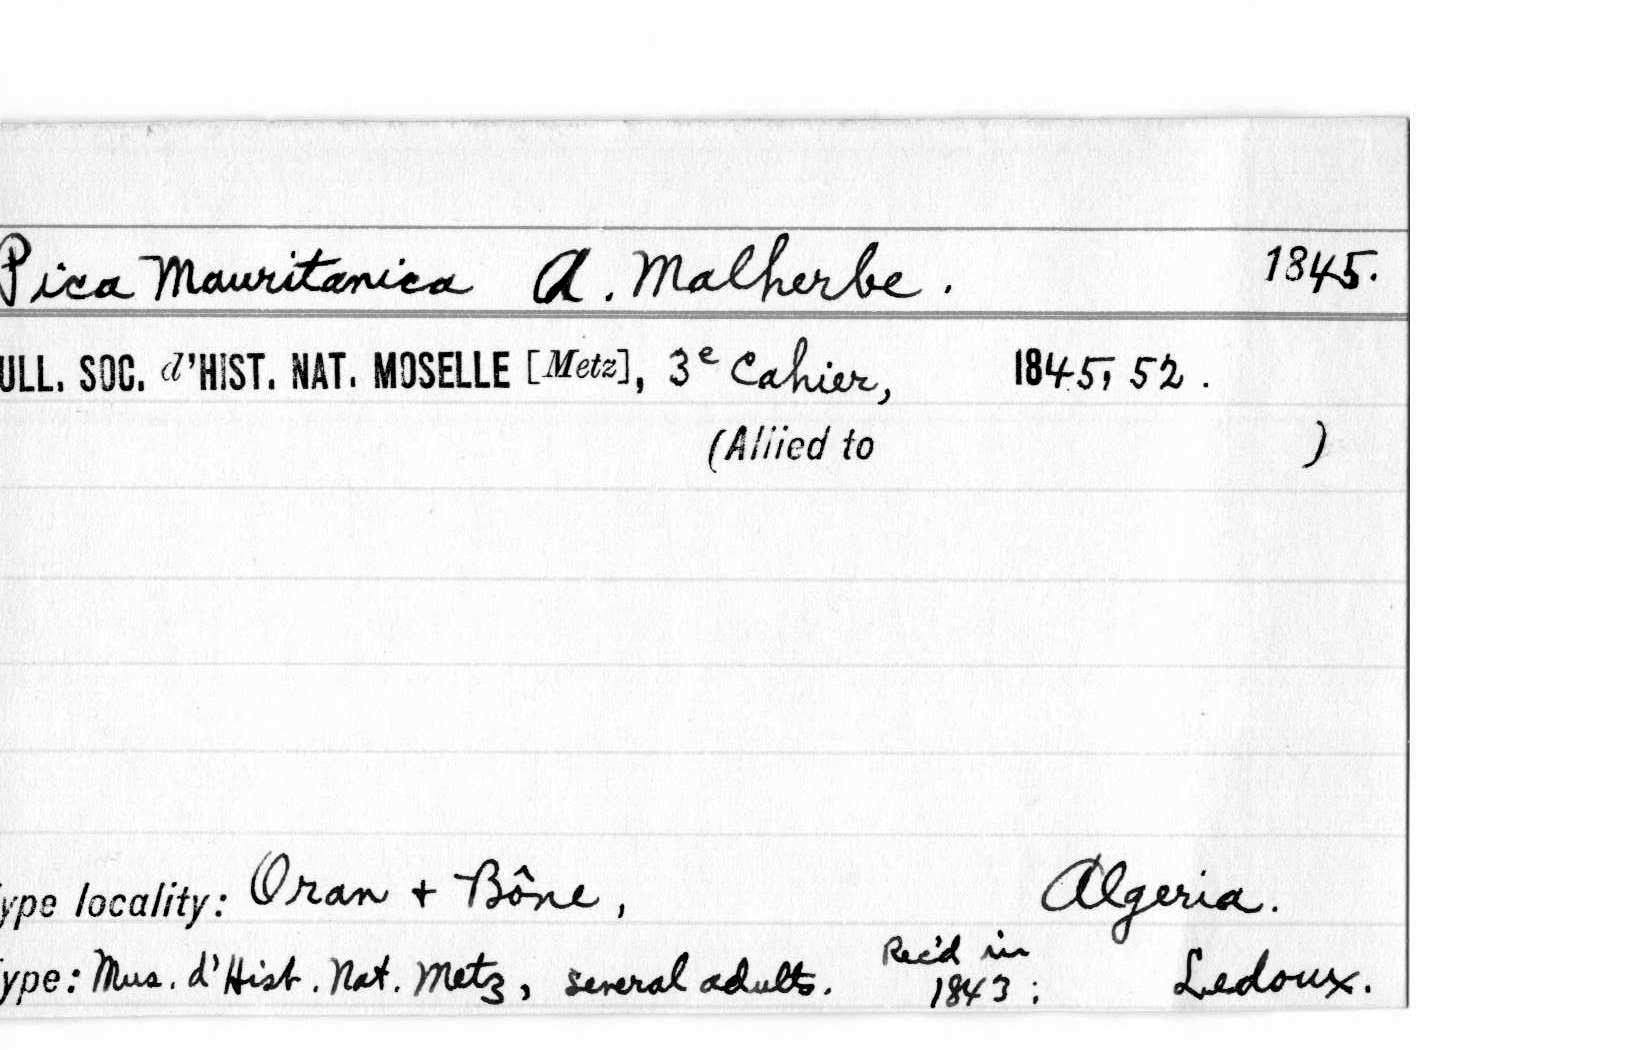 Pica Mauritanica A. Malherbe. 1845.
ULL. SOC. d'HIST. NAT. MOSELLE [Metz], 3e Cahier, 1845, 52.
(Allied to )
ype locality: Oran + Bône, Algeria.
ype: Mus. d'Hist. Nat. Metz, several adults. Rec'd in 1843; Ledoux.